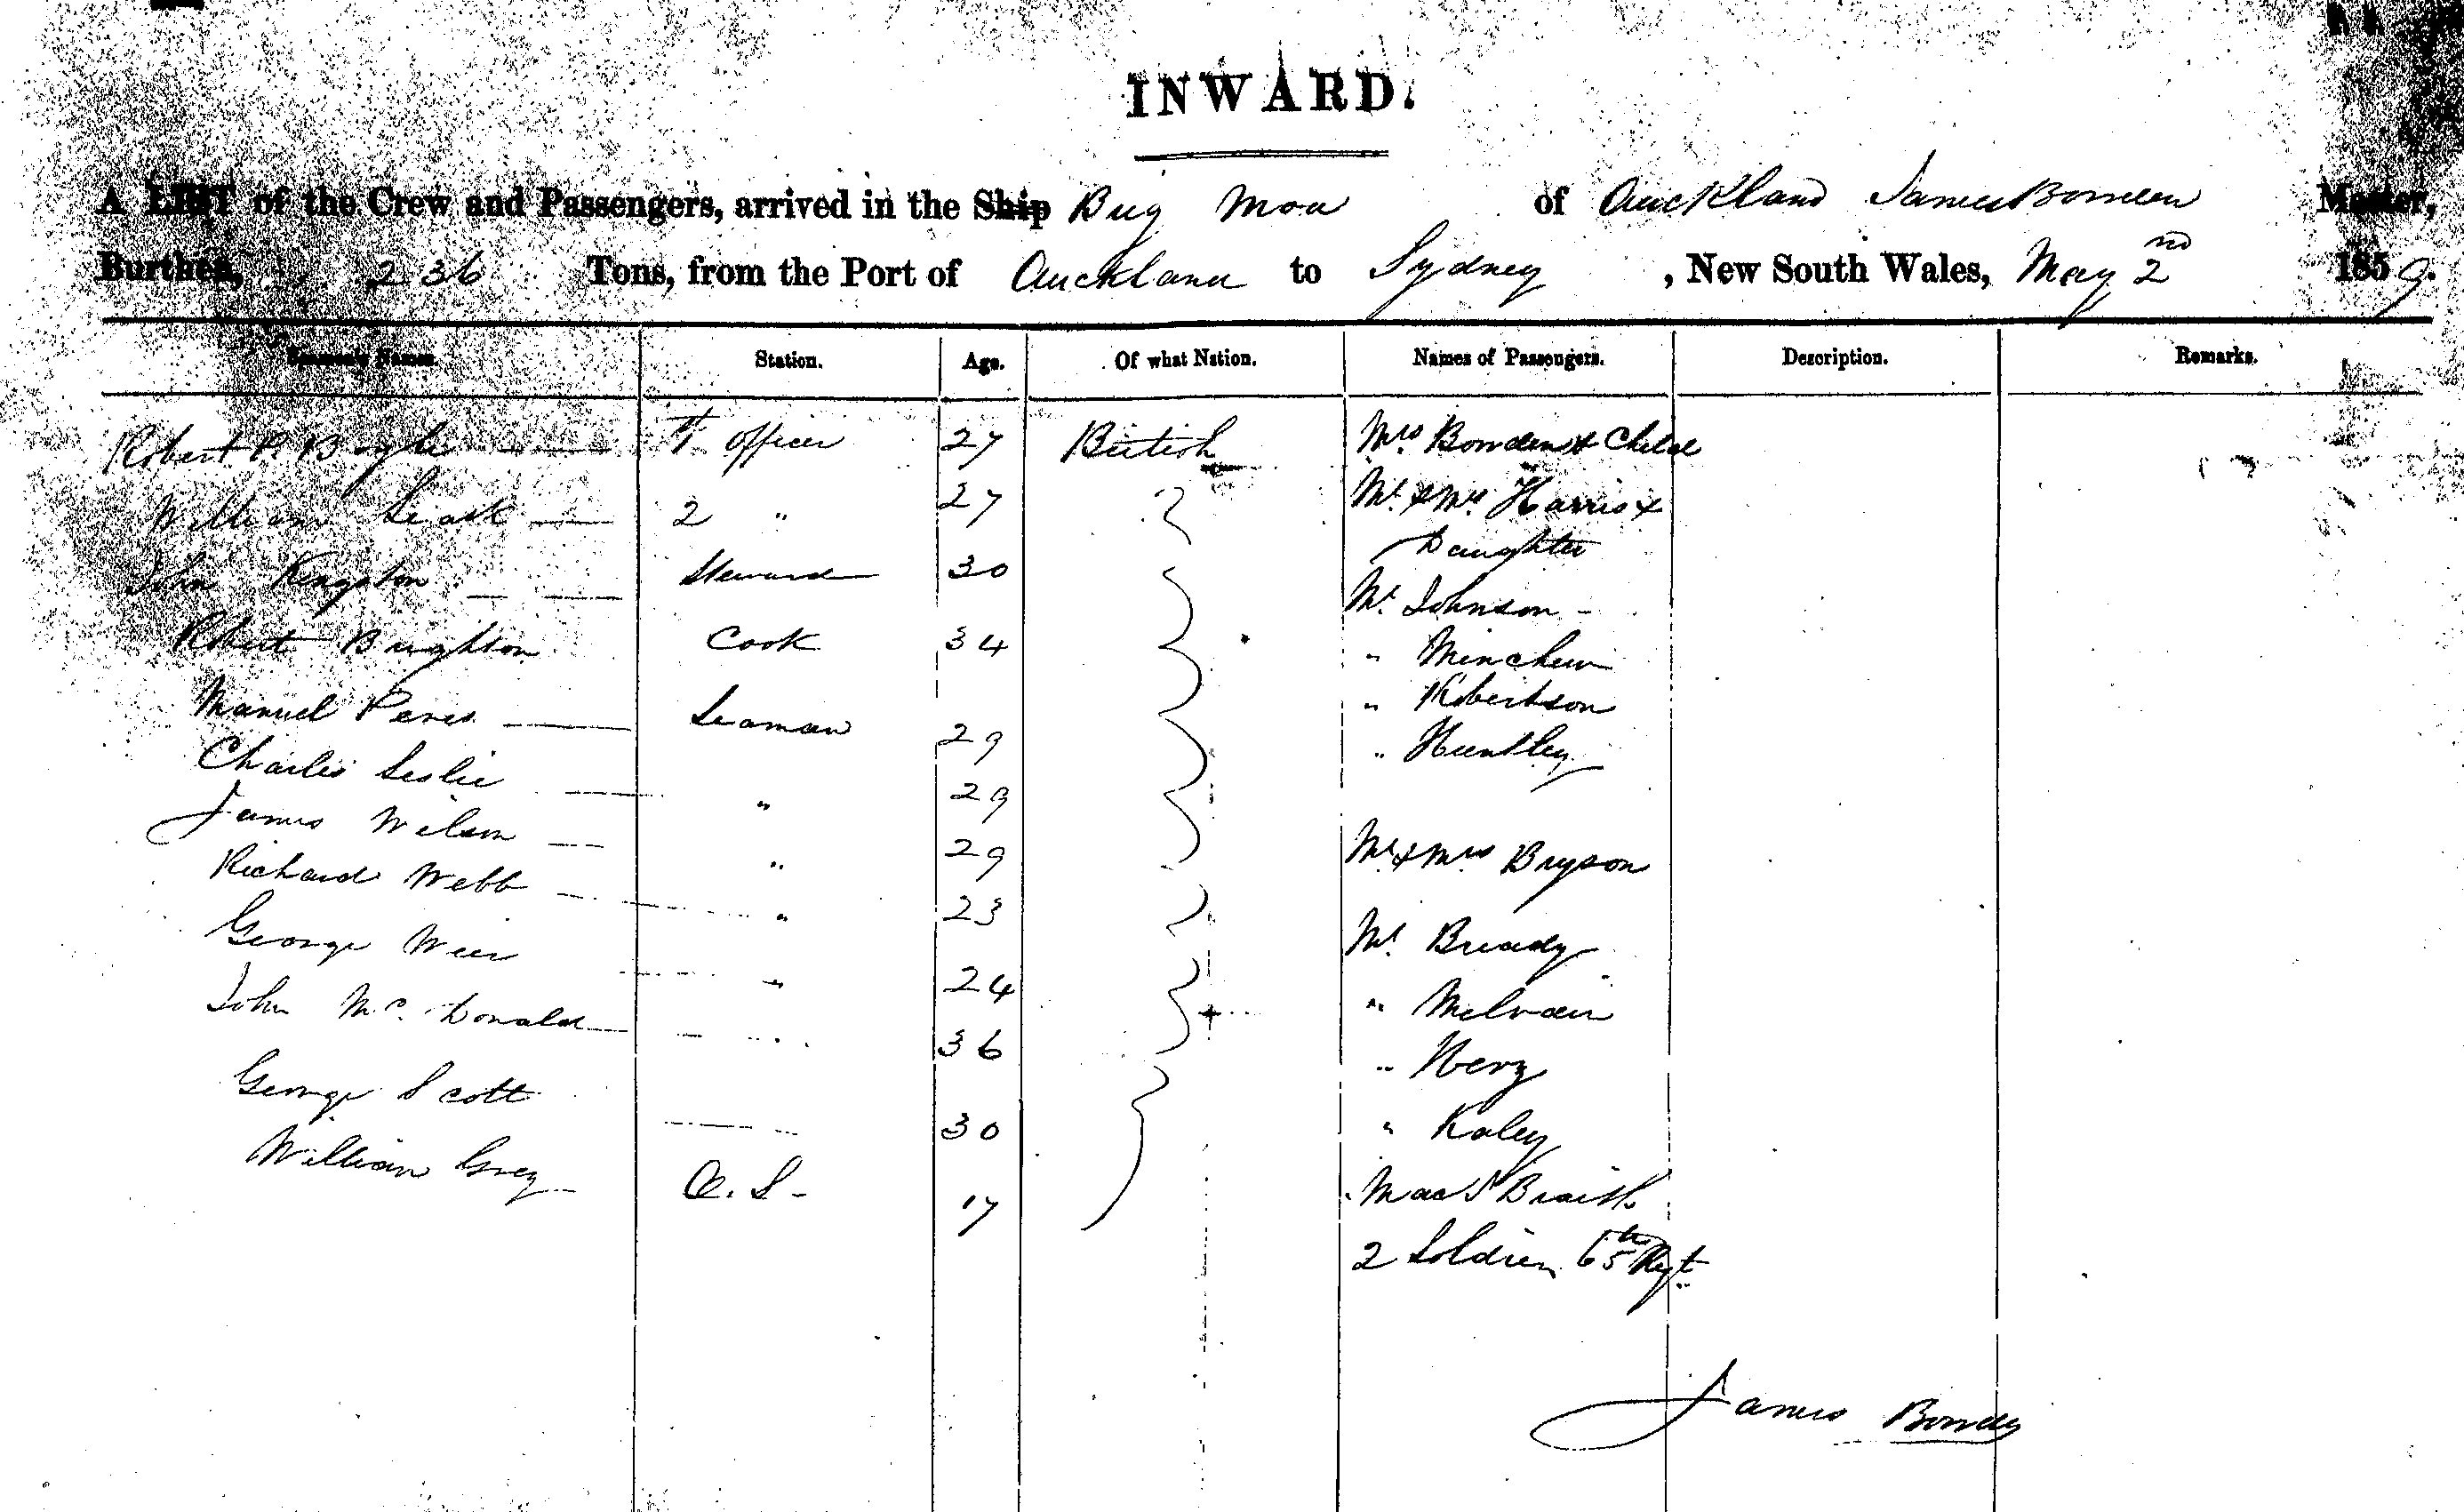 INWARD.
A LIST of the Crew and Passengers, arrived in the Ship Brig Moa of Auckland James Bowden Master,
Burthen, 236 Tons, from the Port of Auckland to Sydney, New South Wales, May 2nd 1859.
Seamen's Names. Station. Age. Of what Nation. Names of Passengers. Description. Remarks.
Robert P. Bogle 1st Officer 27 British Mrs Bowden & Child
William Leask 2 " 27 Mr & Mrs Harris &
Daughter
John Kingston Steward 30 Mr Johnson
Robert Brighton Cook 34 " Minchin
" Robertson
Manuel Peres Seaman 29 " Huntley
Charles Leslie " 29
James Wilson " 29 Mr & Mrs Bryson
Richard Webb " 23
George Weir " 24 Mr Bready
John McDonald " 36 " Melvain
George Scott 30 " Herz
" Kaley
William Grey O.S. 17 Braith
2 Soldiers 65th Regt
James Bowden